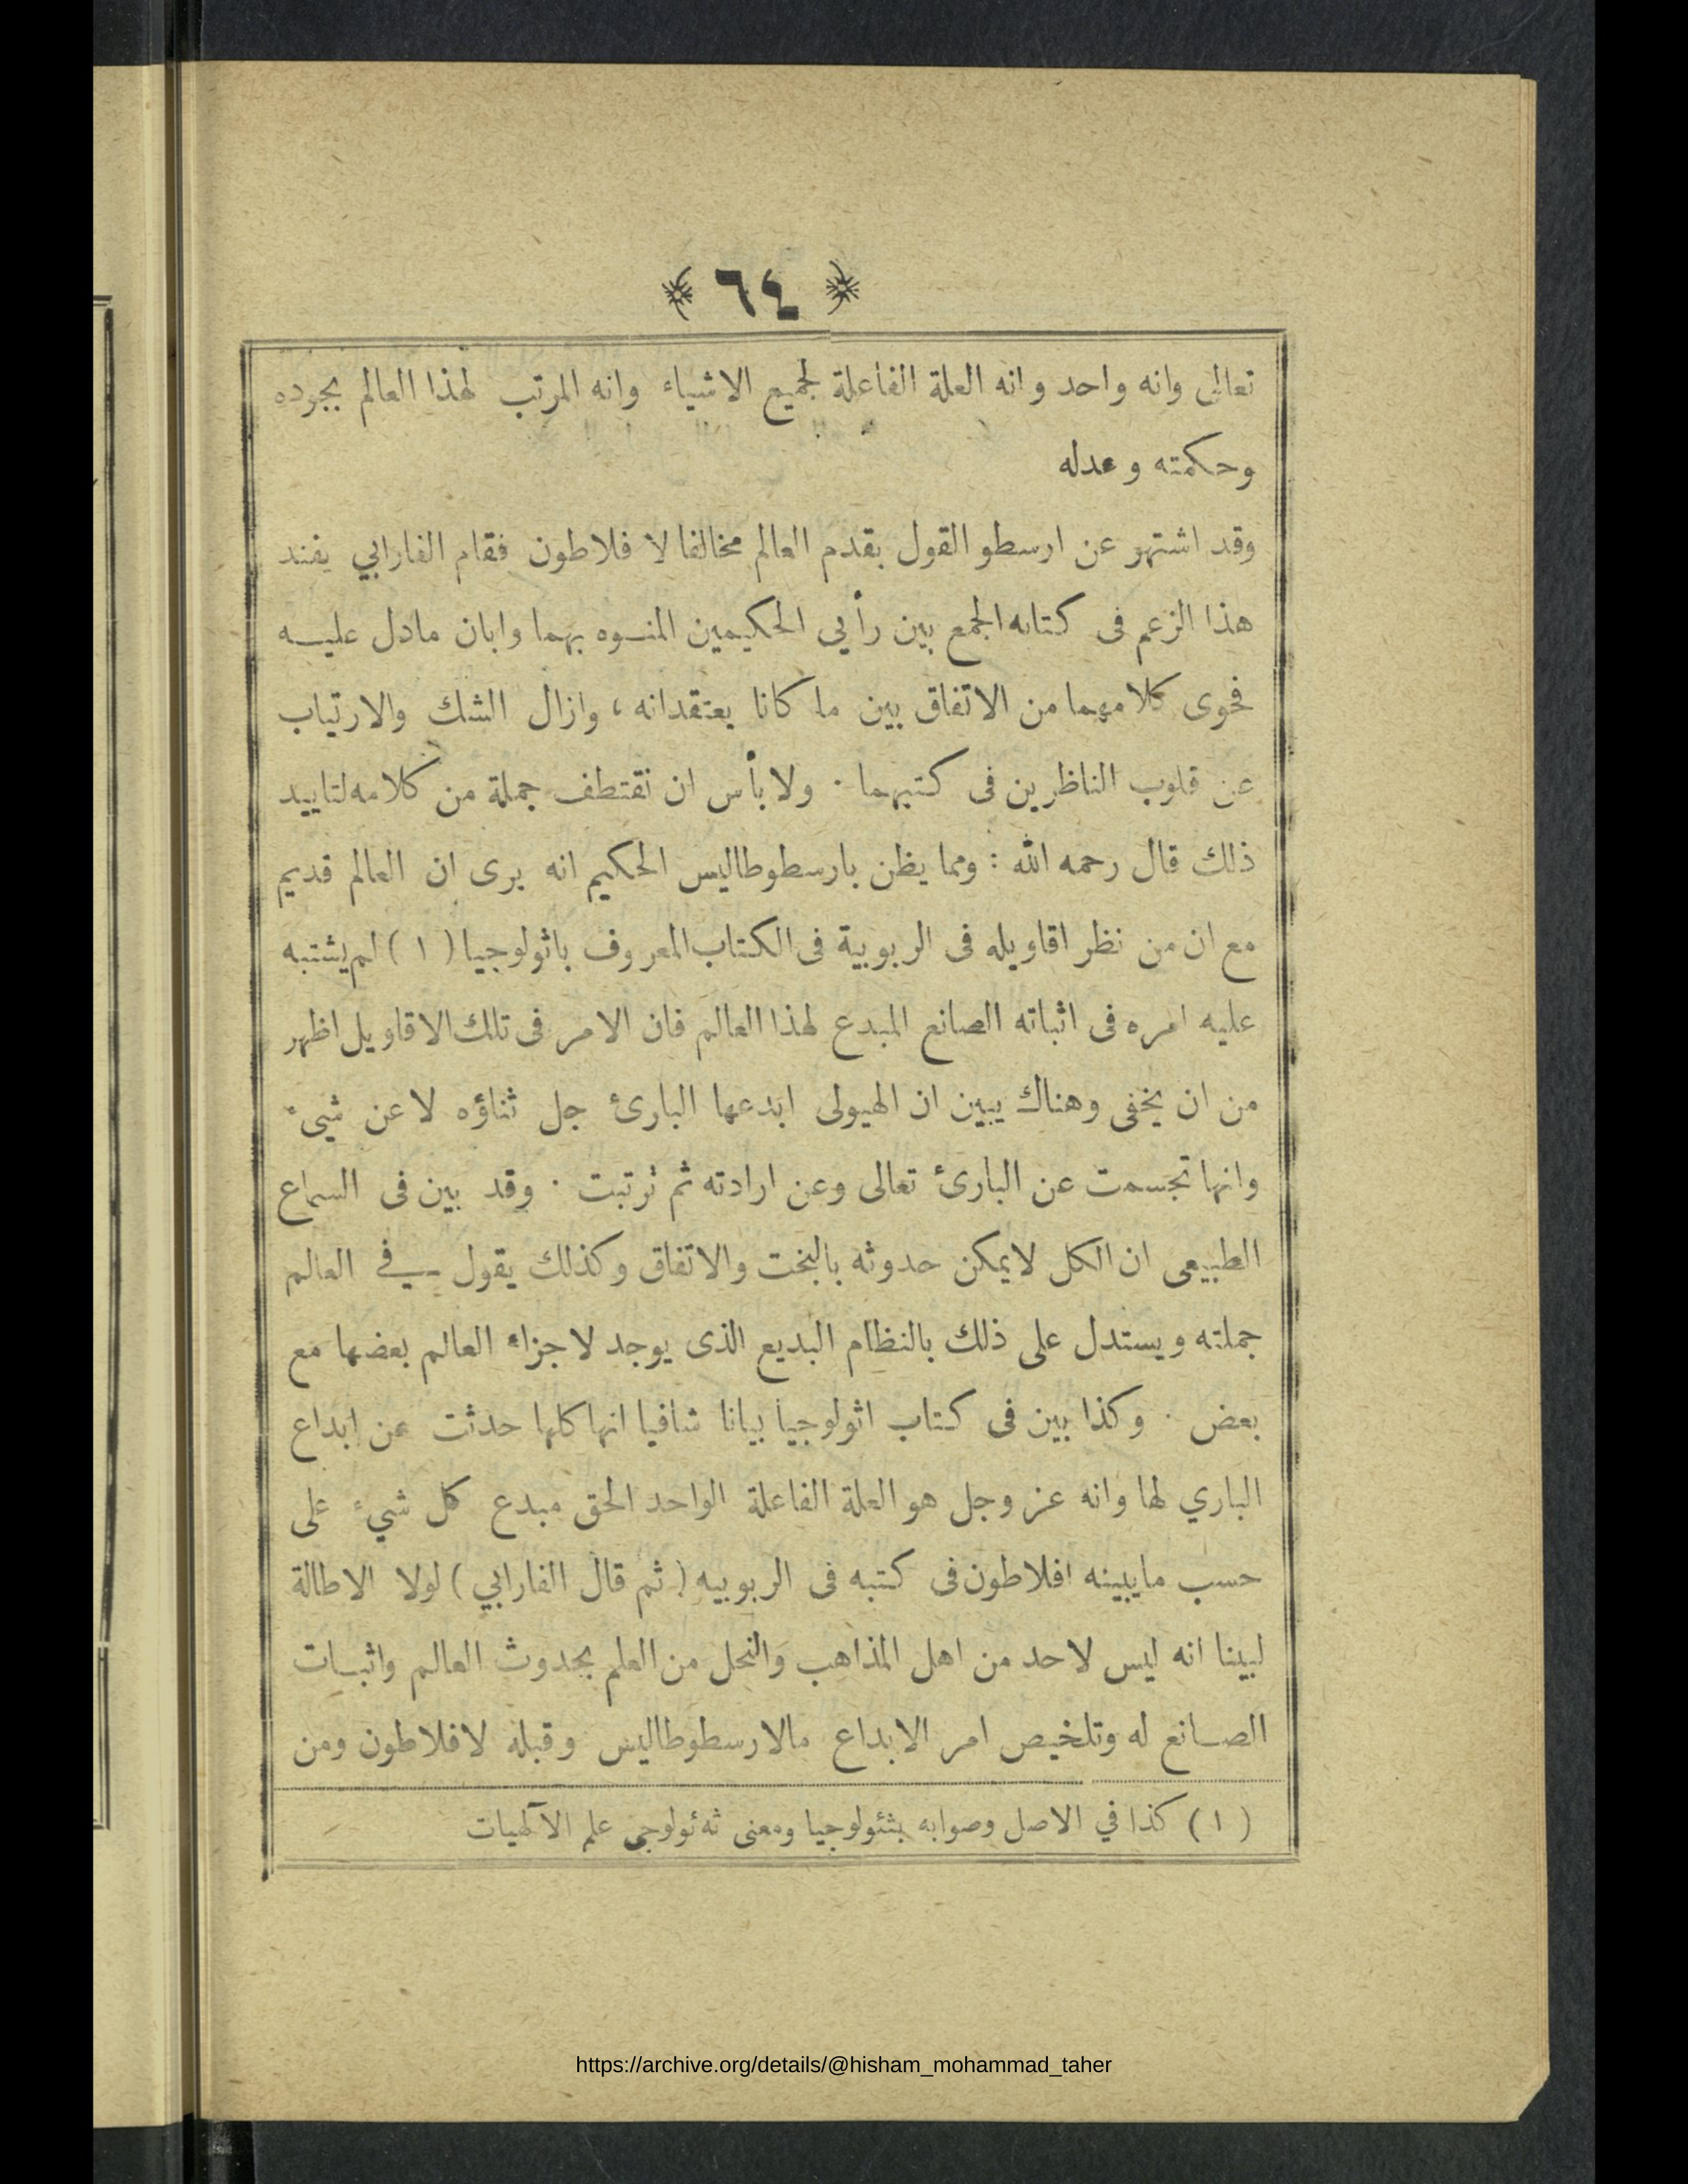 ﴿ ٦٤ ﴾
تعالى وانه واحد وانه العلة الفاعلة لجميع الاشياء وانه المرتب لهذا العالم بجوده
وحكمته وعدله
وقد اشتهر عن ارسطو القول بقدم العالم مخالفا لا فلاطون فقام الفارابي يفند
هذا الزعم فى كتابه الجمع بين رأيي الحكيمين المنوه بهما وابان مادل عليه
فحوى كلامهما من الاتفاق بين ما كانا يعتقدانه ، وازال الشك والارتياب
عن قلوب الناظرين فى كتبهما . ولا بأس ان نقتطف جملة من كلامه لتاييد
ذلك قال رحمه الله : ومما يظن بارسطوطاليس الحكيم انه يرى ان العالم قديم
مع ان من نظر اقاويله فى الربوبية فى الكتاب المعروف باثولوجيا ( ١ ) لم يشتبه
عليه امره فى اثباته الصانع المبدع لهذا العالم فان الامر فى تلك الاقاويل اظهر
من ان يخفى وهناك يبين ان الهيولى ابدعها البارئ جل ثناؤه لا عن شيء
وانها تجسمت عن البارئ تعالى وعن ارادته ثم ترتبت . وقد بين فى السماع
الطبيعى ان الكل لايمكن حدوثه بالبخت والاتفاق وكذلك يقول في العالم
جملته ويستدل على ذلك بالنظام البديع الذى يوجد لاجزاء العالم بعضها مع
بعض . وكذا بين فى كتاب اثولوجيا بيانا شافيا انها كلها حدثت عن ابداع
الباري لها وانه عز وجل هو العلة الفاعلة الواحد الحق مبدع كل شيء على
حسب مايبينه افلاطون فى كتبه فى الربوبيه ( ثم قال الفارابي ) لولا الاطالة
لبينا انه ليس لاحد من اهل المذاهب والنحل من العلم بحدوث العالم واثبات
الصانع له وتلخيص امر الابداع مالارسطوطاليس وقبله لافلاطون ومن
( ١ ) كذا في الاصل وصوابه بثئولوجيا ومعنى ثه ئولوجى علم الآلهيات
https://archive.org/details/@hisham_mohammad_taher